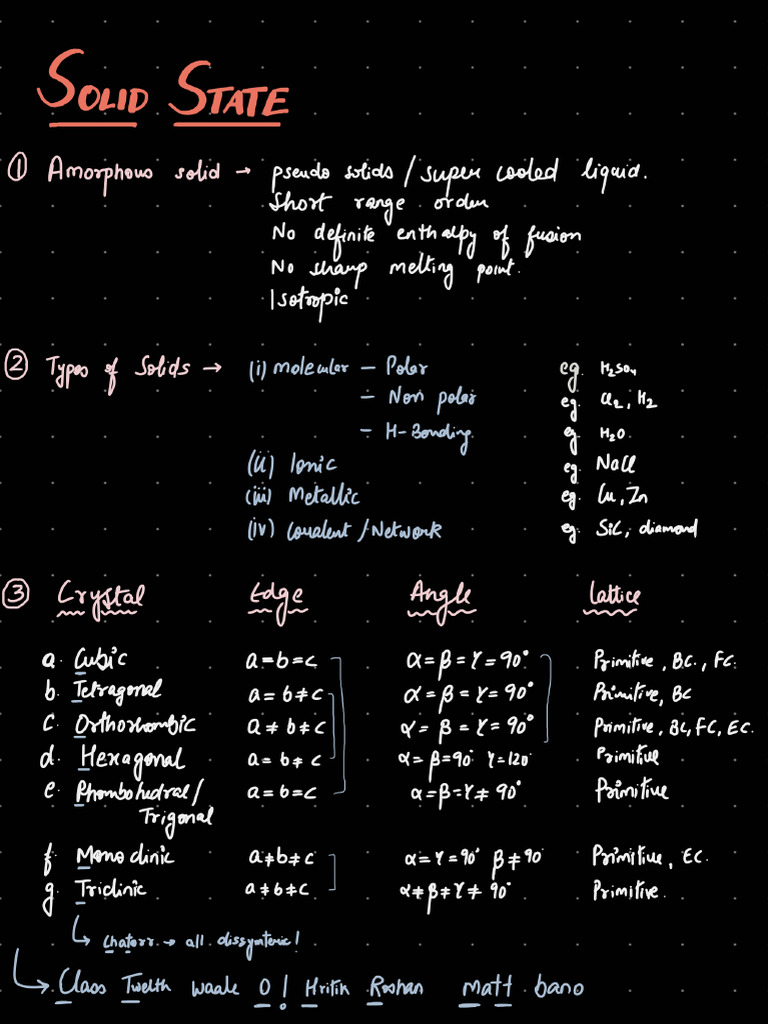 SOLID STATE
① Amorphous solid → pseudo solids / super cooled liquid.
Short range order
No definite enthalpy of fusion
No sharp melting point.
Isotropic
② Types of Solids → (i) Molecular – Polar eg. H₂SO₄
– Non polar eg. Cl₂, H₂
– H-Bonding eg. H₂O
(ii) Ionic eg. NaCl
(iii) Metallic eg. Cu, Zn
(iv) Covalent / Network eg. SiC, diamond
③ Crystal Edge Angle Lattice
a. Cubic a = b = c α = β = γ = 90° Primitive, B.C., FC.
b. Tetragonal a = b ≠ c α = β = γ = 90° Primitive, BC
c. Orthorhombic a ≠ b ≠ c α = β = γ = 90° Primitive, BC, FC, EC.
d. Hexagonal a = b ≠ c α = β = 90° γ = 120° Primitive
e. Rhombohedral / a = b = c α = β = γ ≠ 90° Primitive
Trigonal
f. Monoclinic a ≠ b ≠ c α = γ = 90° β ≠ 90 Primitive, EC.
g. Triclinic a ≠ b ≠ c α ≠ β ≠ γ ≠ 90° Primitive.
↳ → all dissymteric!
↳ Class Twelth waale O! Hritik Roshan matt bano